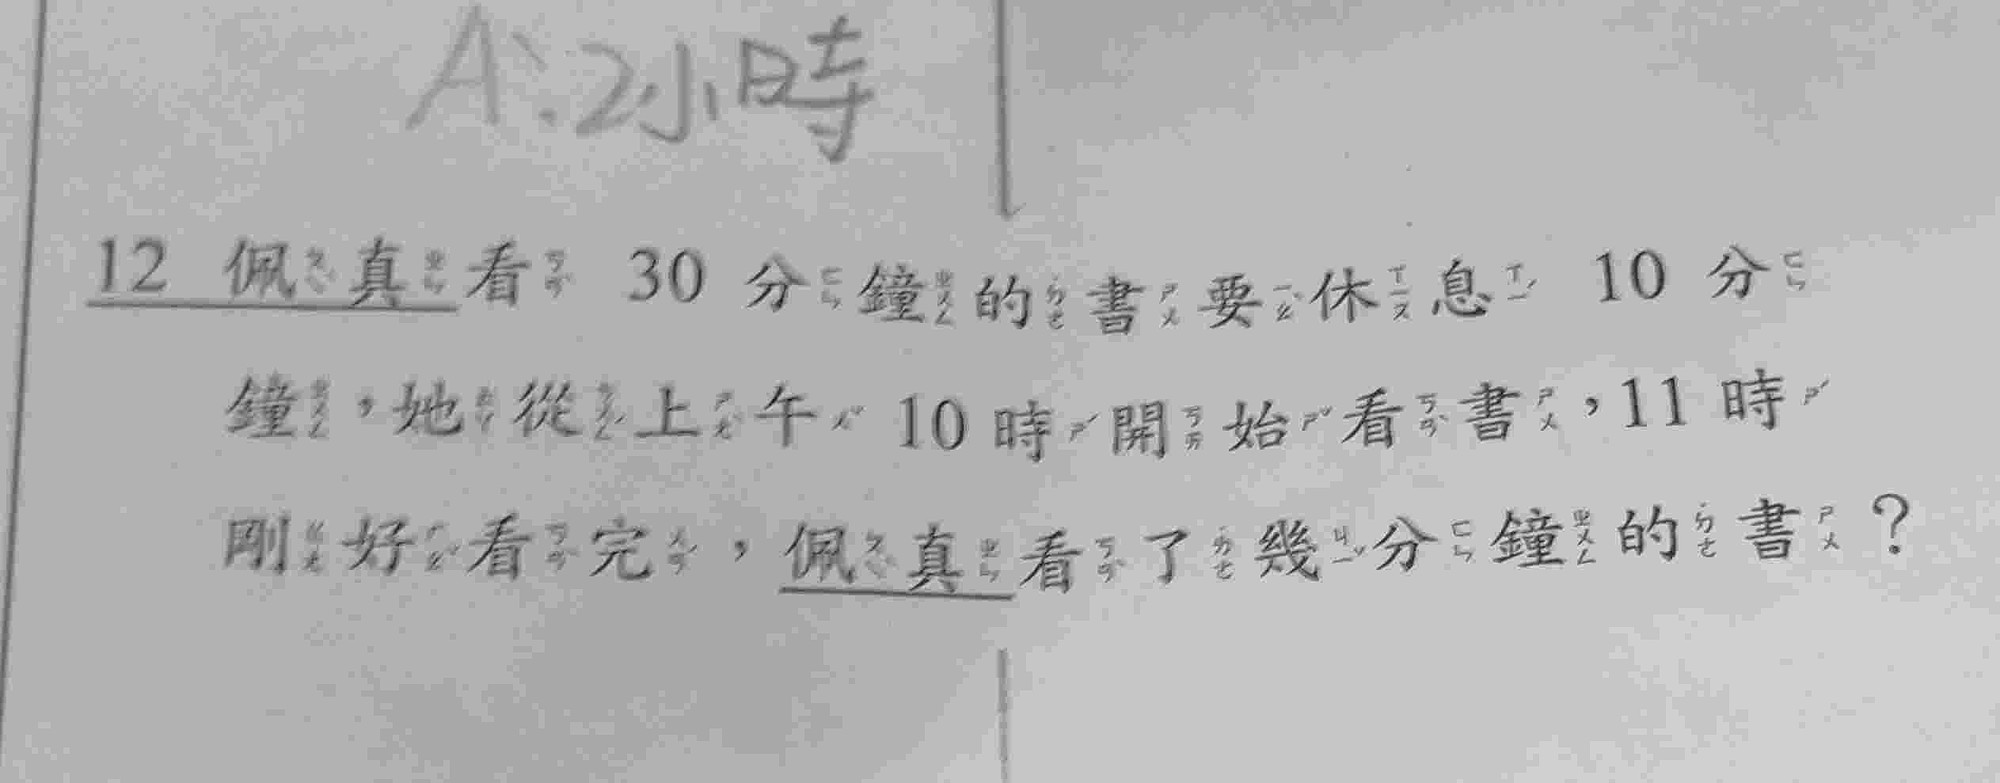 A:2小時
12 佩真看 30 分鐘的書要休息 10 分
鐘,她從上午 10 時開始看書,11 時
剛好看完,佩真看了幾分鐘的書?